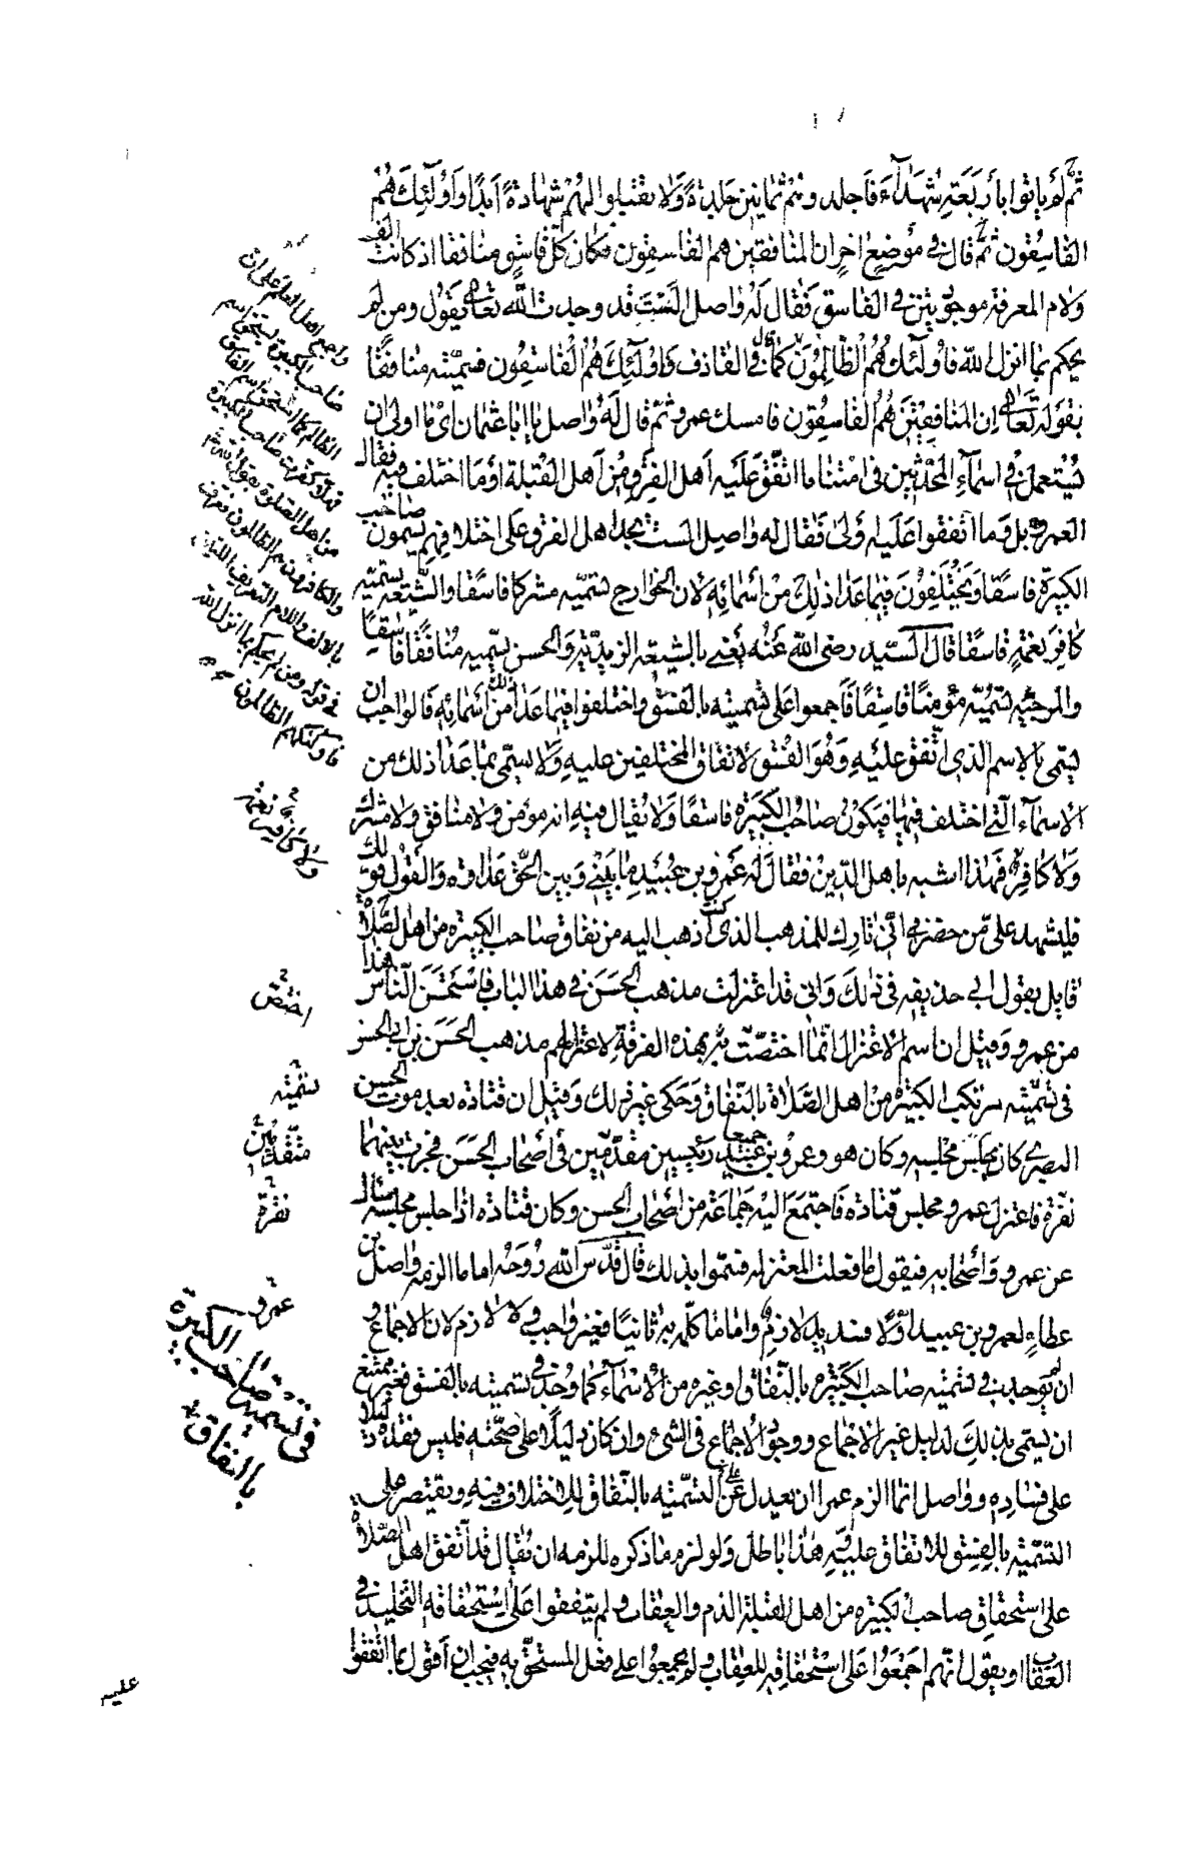 ثم لم ياتوا بأربعة شهدآء فاجلدوهم ثمانين جلدة ولا تقبلوا لهم شهادة أبدا واولئك هم
الفاسقون ثم قال في موضع اخر ان المنافقين هم الفاسقون فكان كل فاسق منافقا اذ كانت الف
ولام المعرفة موجودتين في الفاسق فقال له واصل الست قد وجدت الله تعالى يقول ومن لم
يحكم بما انزل الله فاولئك هم الظالمون كما قال في القاذف واولئك هم الفاسقون فسميته منافقا
بقوله تعالى ان المنافقين هم الفاسقون فامسك عمرو ثم قال له واصل يا ابا عثمان اي ما اولى ان
تستعمل في اسمآء المحدثين في امتنا ما اتفق عليه أهل الفرق من أهل القبلة او ما اختلف فيه فقال
العمرو بل وما اتفقوا عليه اولى فقال له واصل الست تجد اهل الفرق على اختلافهم يسمون صاحب
الكبيرة فاسقا ويختلفون فيما عدا ذلك من أسمائه لان الخوارج تسميه مشركا فاسقا والشيعة يسميه
كافر نعمة فاسقا قال السيد رضي الله عنه يعني بالشيعة الزيدية والحسن يسميه منافقا فاسقا
والمرجئة تسميه مؤمنا فاسقا فاجمعوا على تسميته بالفسق واختلفوا فيما عدا ذلك من أسمائه قالواجب ان
يسمى بالاسم الذي اتفق عليه وهو الفسق لاتفاق المختلفين عليه ولا يسمى بما عدا ذلك من
الاسمآء التي اختلف فيها فيكون صاحب الكبيرة فاسقا ولا يقال فيه انه مؤمن ولا منافق ولا مشرك
ولا كافر فهذا اشبه باهل الدين فقال له عمرو بن عبيد ما بيني وبين الحق عداوة والقول قولك
فليشهد علي من حضر اني تارك للمذهب الذي كنت أذهب اليه من نفاق صاحب الكبيرة من اهل الصلاة
قايل بقول ابي حذيفة في ذلك واني قد اعتزلت مذهب الحسن في هذا الباب فاستحسن الناس هذا
من عمرو وقيل ان اسم الاعتزال انما اختصت به هذه الفرقة لاعتزالهم مذهب الحسن بن ابي الحسن
في تسميته مرتكب الكبيرة من اهل الصلاة بالنفاق وحكى غير ذلك وقيل ان قتادة بعد موت الحسن
البصري كان يجلس مجلسه وكان هو وعمرو بن عبيد جميعا رئيسين مقدمين في أصحاب الحسن فجرت بينهما
نفرة فاعتزل عمرو مجلس قتادة فاجتمع اليه جماعة من أصحاب الحسن وكان قتادة اذا جلس مجلسه سال
عن عمرو وأصحابه فيقول ما فعلت المعتزلة فسموا بذلك قال قدس الله روحه اما ما الزمه واصل بن
عطاء لعمرو بن عبيد اولا فسديد لازم واما ما كلمه به ثانيا فغير واجب ولا لازم لان الاجماع و
ان لم يوجد في تسميته صاحب الكبيرة بالنفاق او غيره من الأسمآء كما وجد في تسميته بالفسق فغير ممتنع
ان يسمى بذلك لدليل غير الاجماع ووجود الاجماع في الشئ وان كان دليلا على صحته فليس فقده دليلا
على فساده وواصل انما الزم عمرا ان يعدل عن التسمية بالنفاق للاختلاف فيه ويقتصر على
التسمية بالفسق للاتفاق عليه وهذا باطل ولو لزم ما ذكره للزمه ان يقال قد اتفق اهل الصلاة
على استحقاق صاحب الكبيرة من اهل القبلة الذم والعقاب ولم يتفقوا على استحقاقه التخليد في
العقاب او يقول انهم اجمعوا على استحقاقه للعقاب ولم يجمعوا على فعل المستحق به فيجب ان أقول بما اتفقوا
عليه
واجمع اهل العلم على ان
صاحب الكبيرة يستحق اسم
الظالم كما استحق اسم الفاسق
صاحب الكبيرة
من اهل الصلوة بقول الله
والكافرون هم الظالمون فعرف
بالالف واللام التعريف اللتين
في قوله ومن لم يحكم بما انزل الله
فاولئك هم الظالمون
ولا كافر نعمة
اختص
تسميته
متقدمين
نفرة
عمرو
في تسميته صاحب الكبيرة
بالنفاق